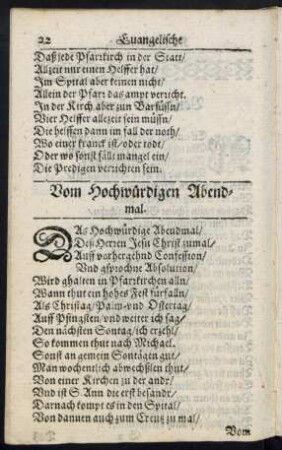 22 Euangelische
Daß jede Pfarrkirch in der Statt/
Allzeit nur einen Helffer hat/
Im Spital aber keinen nicht/
Allein der Pfarr das ampt verricht.
In der Kirch aber zun Barfüssn/
Vier Helffer allezeit sein müssn/
Die helffen dann im fall der noth/
Wo einer kranck ist/ oder todt/
Oder wo sonst fällt mangel ein/
Die Predigen verrichten fein.
Vom Hochwürdigen Abend-
mal.
DAs Hochwürdige Abendmal/
Deß Herren Jesu Christ zumal/
Auff vorhergehnd Confession/
Vnd gsprochne Absolution/
Wird ghalten in Pfarrkirchen alln/
Wann thut ein hohes Fest fürfalln/
Als Christag/ Palm- vnd Ostertag/
Auff Pfingsten/ vnd weiter ich sag/
Den nächsten Sontag/ ich erzehl/
So kommen thut nach Michael.
Sonst an gemein Sontägen gut/
Man wochentlich abwechßlen thut/
Von einer Kirchen zu der andr/
Vnd ist S. Ann die erst besandr/
Darnach kompt es in den Spital/
Von dannen auch zum Creutz zu mal/
Vom